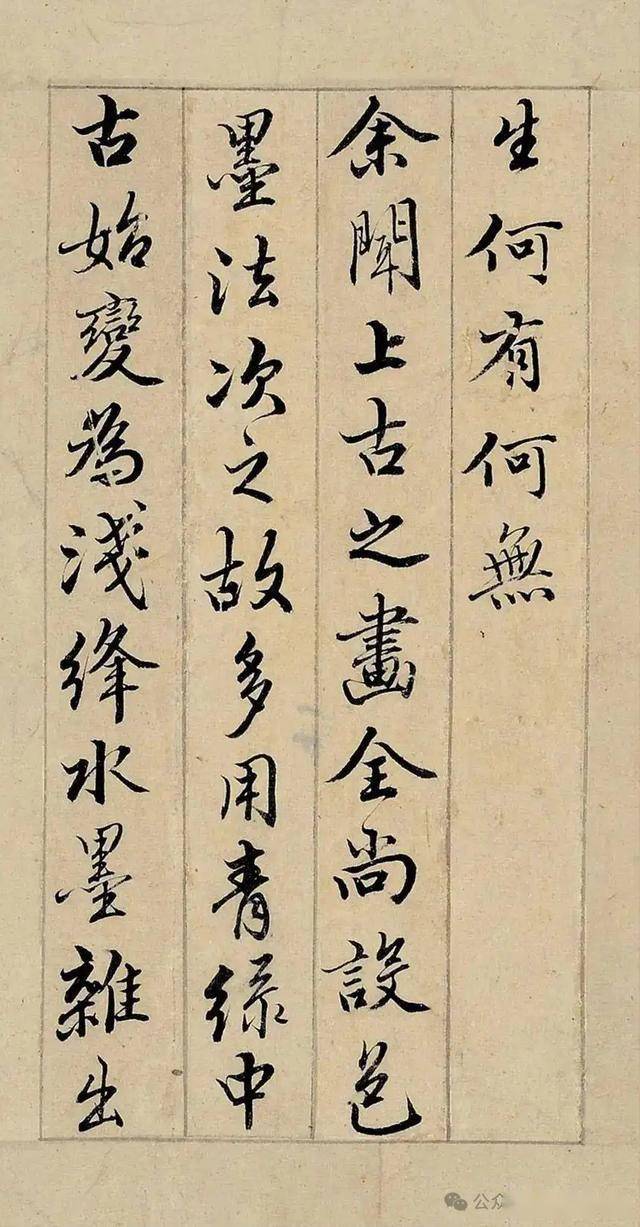 生何有何無
余聞上古之畫全尚設色
墨法次之故多用青緑中
古始變為淺絳水墨雜出
公众